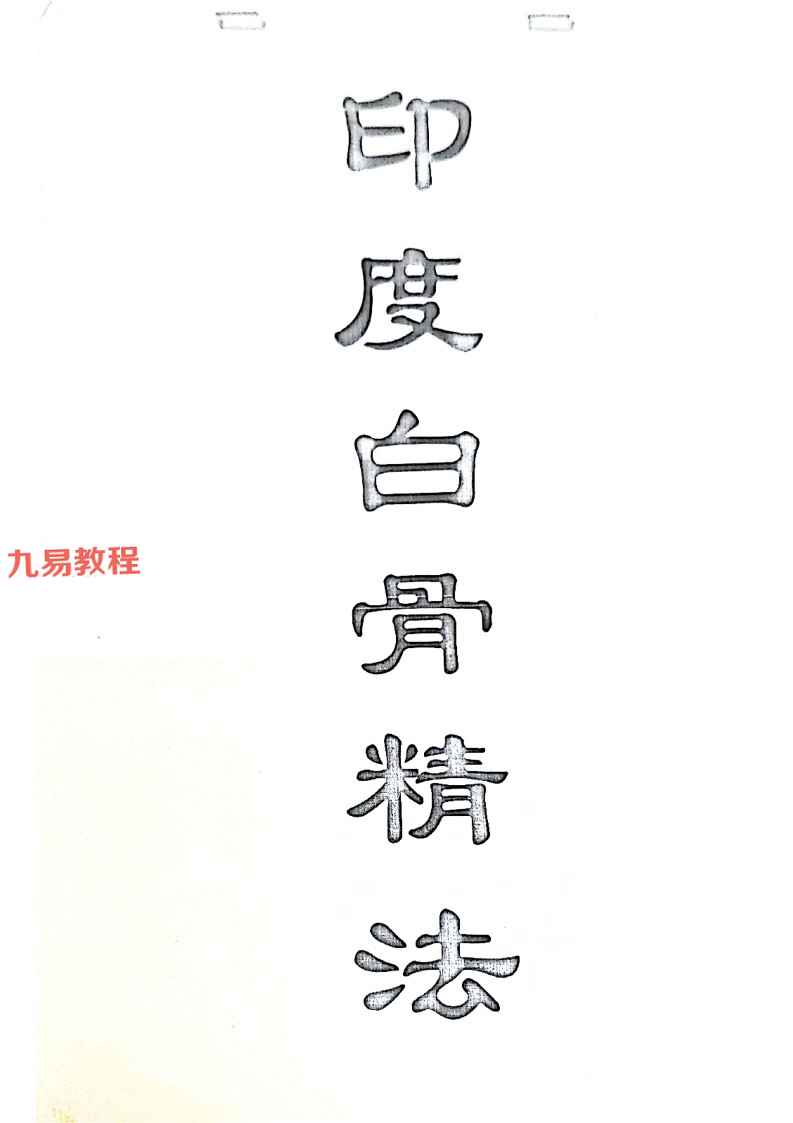 印度白骨精法
九易教程